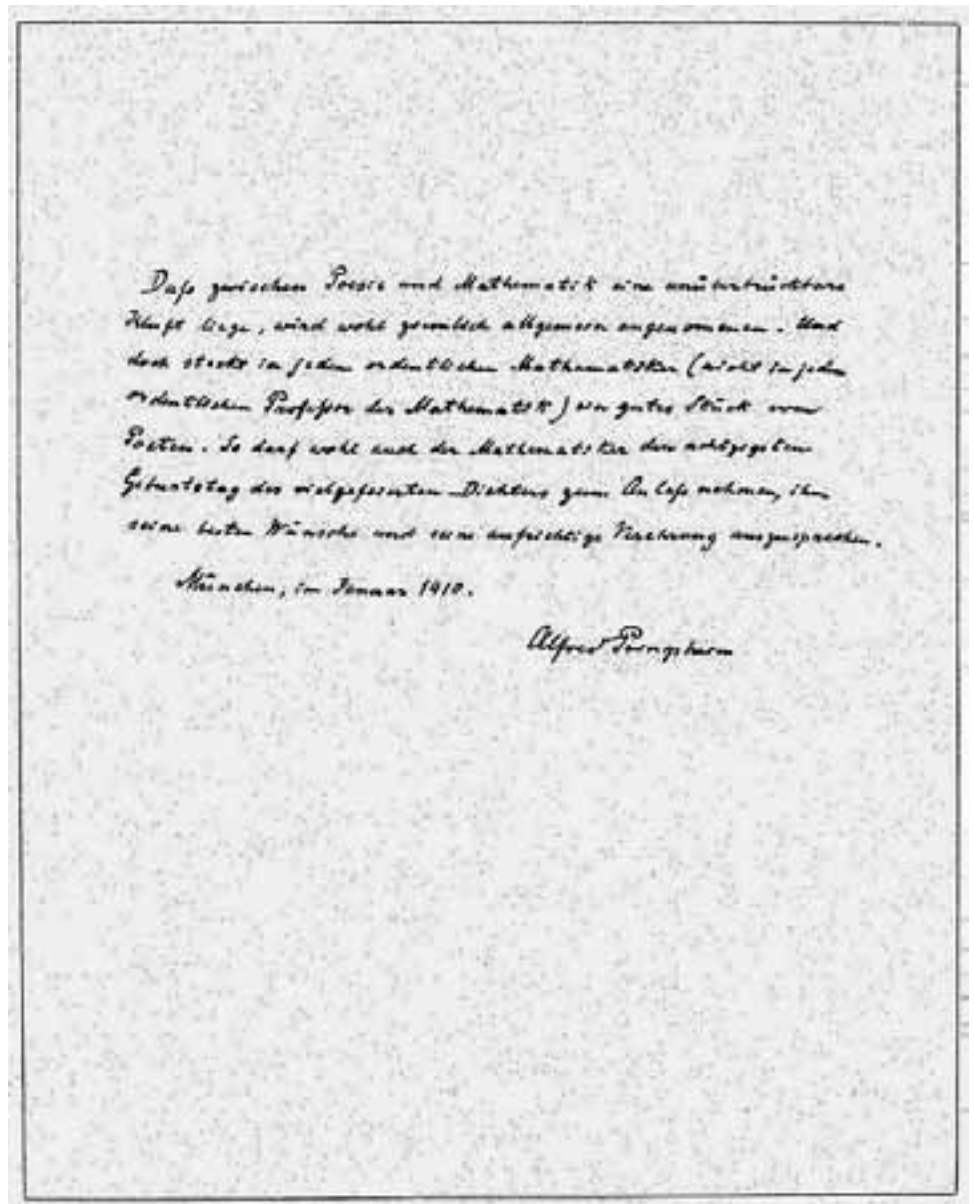 Daß zwischen Poesie und Mathematik eine unüberbrückbare
Kluft liege, wird wohl ziemlich allgemein angenommen. Und
doch steckt in jedem ordentlichen Mathematiker (nicht in jedem
ordentlichen Professor der Mathematik) ein gutes Stück vom
Poeten. So darf wohl auch der Mathematiker den achtzigsten
Geburtstag des vielgefeierten Dichters zum Anlaß nehmen, ihm
seine besten Wünsche und seine aufrichtige Verehrung auszusprechen.
München, im Januar 1910.
Alfred Pringsheim